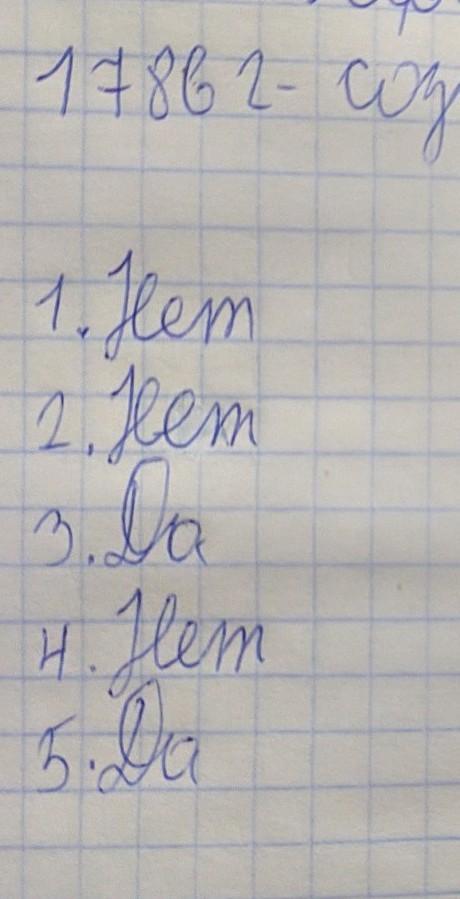 1786 г- соз
1. Нет
2. Нет
3. Да
4. Нет
5. Да